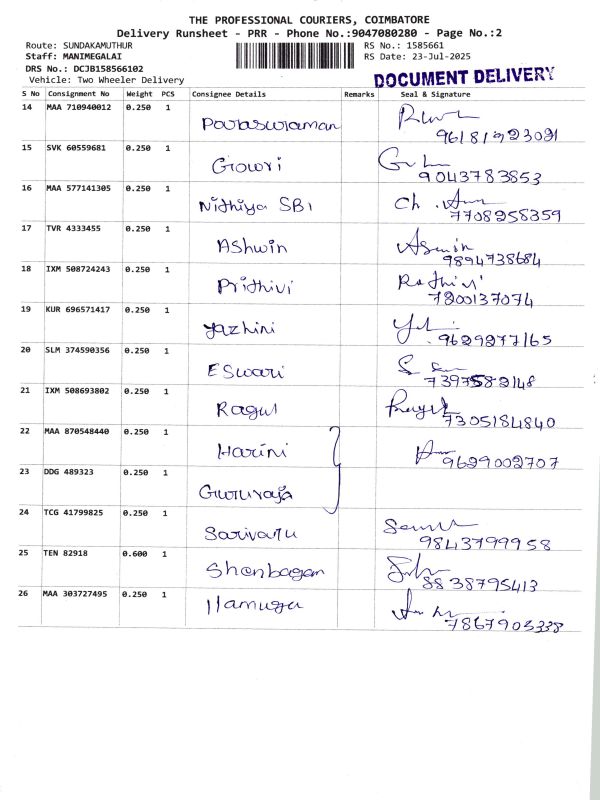 THE PROFESSIONAL COURIERS, COIMBATORE
Delivery Runsheet - PRR - Phone No.:9047080280 - Page No.:2
Route: SUNDAKAMUTHUR RS No.: 1585661
Staff: MANIMEGALAI RS Date: 23-Jul-2025
DRS No.: DCJB158566102
Vehicle: Two Wheeler Delivery
DOCUMENT DELIVERY
S No Consignment No Weight PCS Consignee Details Remarks Seal & Signature
14 MAA 710940012 0.250 1
Parasuraman
15 SVK 60559681 0.250 1
Gowri
9043783853
16 MAA 577141305 0.250 1
Nithiya SBI
7708258359
17 TVR 4333455 0.250 1
Ashwin Aswin
9894738684
18 IXM 508724243 0.250 1
Prithivi
7200137074
19 KUR 696571417 0.250 1
Yazhini
9629277165
20 SLM 374590356 0.250 1
ESwari
21 IXM 508693802 0.250 1
Ragul
7305184840
22 MAA 870548440 0.250 1
Harini
9629002707
23 DDG 489323 0.250 1
Gururaja
24 TCG 41799825 0.250 1
9843799958
25 TEN 82918 0.600 1
Shenbagam
8838795413
26 MAA 303727495 0.250 1
7867903338